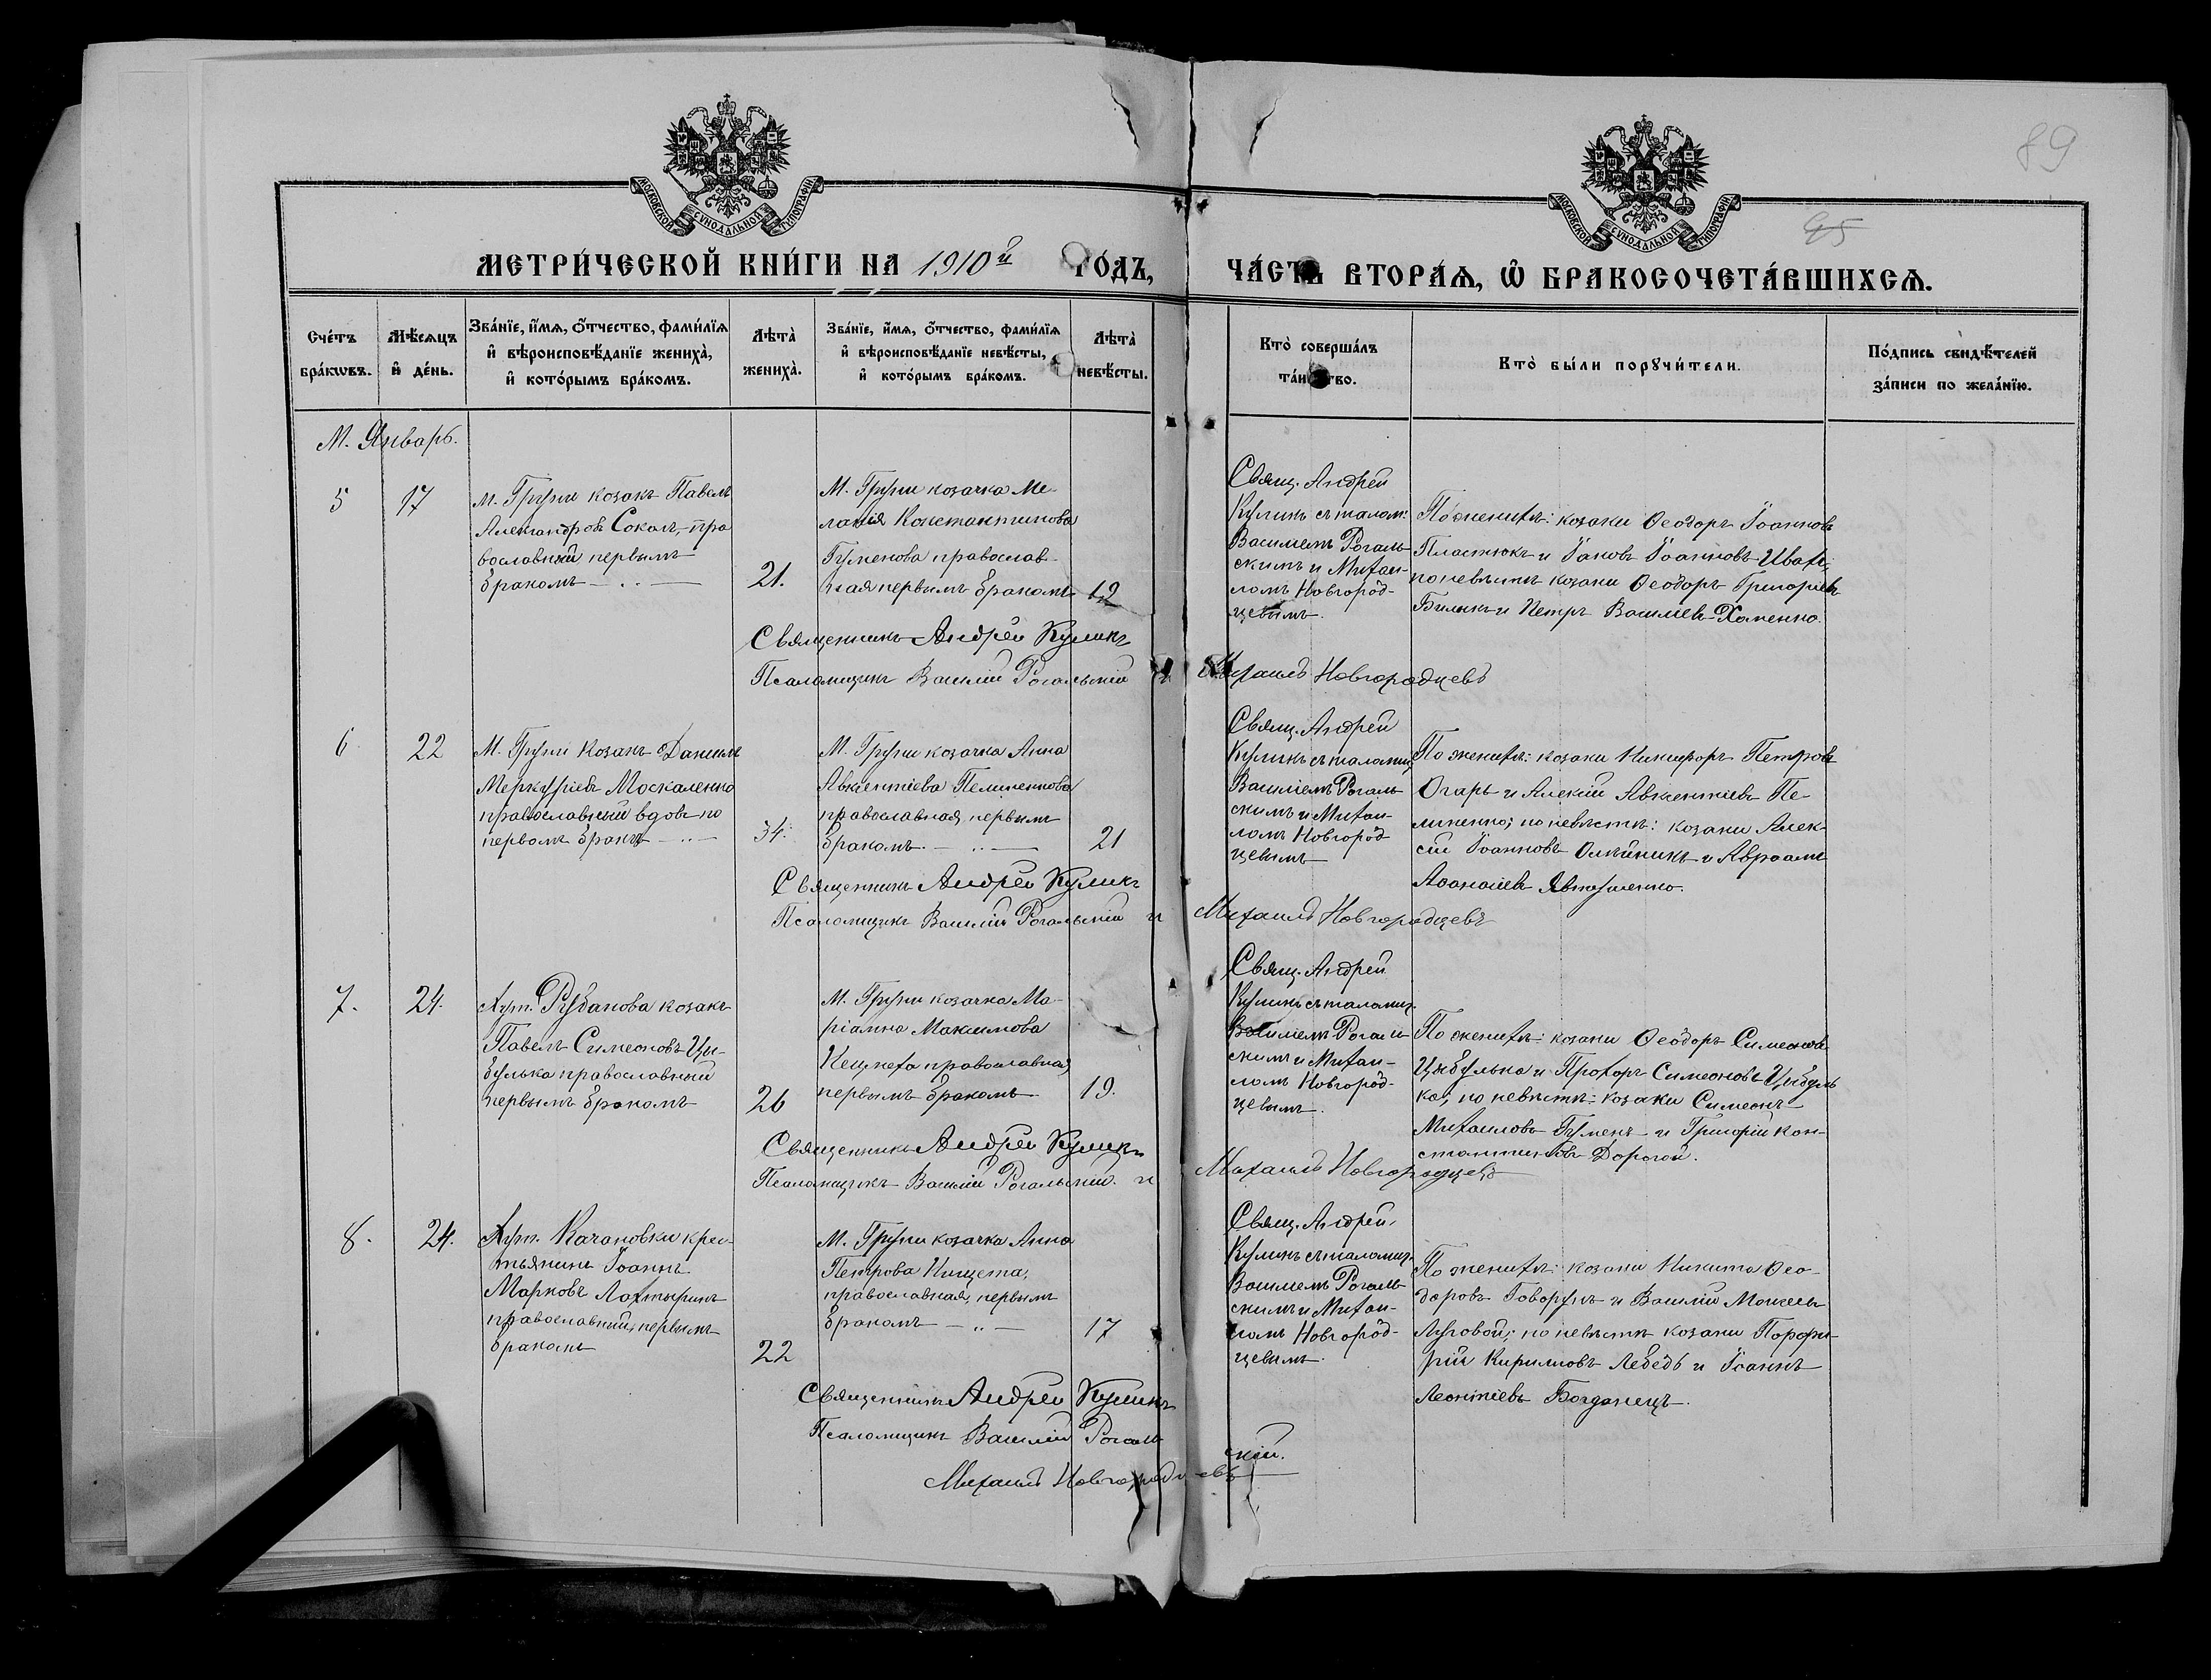 МОСКОВСКОЙ СУНОДАЛЬНОЙ ТИПОГРАФІИ
МОСКОВСКОЙ СУНОДАЛЬНОЙ ТИПОГРАФІИ
89
95
МЕТРИ́ЧЕСКОЙ КНИ́ГИ НА 1910й ГО́ДЪ,
ЧА́СТЬ ВТОРА́Ѧ, Ѡ БРАКОСОЧЕТА́ВШИХСѦ.
Сче́тъ бра́кѡвъ.
Мѣ́сѧцъ и҆ де́нь.
Зва́нїе, и҆́мѧ, ѻ҆́тчество, фами́лїѧ и҆ вѣроисповѣ́данїе жениха̀, и҆ кото́рымъ бра́комъ.
Лѣта̀ жениха̀.
Зва́нїе, и҆́мѧ, ѻ҆́тчество, фами́лїѧ и҆ вѣроисповѣ́данїе невѣ́сты, и҆ кото́рымъ бра́комъ.
Лѣта̀ невѣ́сты.
Кто̀ соверша́лъ та́инство.
Кто̀ бы́ли порꙋчи́тели.
По́дпись свидѣ́телей за́писи по жела́нїю.
М. Январь.
5
17
М. Груни козакъ Павелъ
Александровъ Соколъ, пра
вославный первымъ
бракомъ
21.
М. Груни козачка Ме-
ланія Константинова
Гуменова православ-
ная первымъ бракомъ
19
Свящ. Андрей
Куликъ съ псаломщ:
Василіемъ Рогаль-
скимъ и Михаи-
ломъ Новгород-
цевымъ.
По женихѣ: козаки Ѳеодоръ Іоанновъ
Пластюкъ и Іаковъ Іоанновъ
по невѣстѣ козаки Ѳеодоръ Григоріевъ
Билыкъ и Петръ Василіевъ Хоменко.
Священникъ Андрей Куликъ
Псаломщикъ Василій Рогальскій и Михаилъ Новгородцевъ
6
22
М. Груни козакъ Даніилъ
Меркуріевъ Москаленко
православный вдовъ по
первомъ бракѣ
34.
М. Груни козачка Анна
Авксентіева Пелипенкова
православная, первымъ
бракомъ.
21
Свящ. Андрей
Куликъ съ псаломщ
Василіемъ Рогаль
скимъ и Михаи-
ломъ Новгород
цевымъ
По женихѣ: козаки Никифоръ Петровъ
Огарь и Алексій Авксентіевъ Пе-
липенко; по невѣстѣ: козаки Алек-
сій Іоанновъ Олейникъ и Авраамъ
Аѳанасіевъ
Священникъ Андрей Куликъ
Псаломщикъ Василій Рогальскій и Михаилъ Новгородцевъ
7.
24.
Хут. Рубанова козакъ
Павелъ Симеоновъ Цы-
булька православный
первымъ бракомъ
26
М. Груни козачка Ма-
ріамна Максимова
православная
первымъ бракомъ
19.
Свящ. Андрей
Куликъ съ псаломщ.
Василіемъ Рогаль
скимъ и Михаи-
ломъ Новгород-
цевымъ.
По женихѣ: козаки Ѳеодоръ Симеоновъ
Цыбулька и Прохоръ Симеоновъ Цыбуль
ка; по невѣстѣ: козаки Симеонъ
Михаиловъ Гуменъ и Григорій Кон-
стантиновъ Дорогой.
Священникъ Андрей Куликъ
Псаломщикъ Василій Рогальскій. и Михаилъ Новгородцевъ
8.
24.
Хут. Качановки крес-
тьянинъ Іоаннъ
Марковъ Лахтыринъ
православный, первымъ
бракомъ
22
М. Груни козачка Анна
Петрова Нищета,
православная, первымъ
бракомъ
17
Свящ. Андрей
Куликъ съ псаломщ.
Василіемъ Рогаль-
скимъ и Михаи-
ломъ Новгород-
цевымъ.
По женихѣ: козаки Никита Ѳео-
доровъ Говорунъ и Василій
Луговой; по невѣстѣ козаки Порфи-
рій Кирилловъ Лебедь и Іоаннъ
Леонтіевъ Богданецъ.
Священникъ Андрей Куликъ
Псаломщикъ Василій Рогальскій.
Михаилъ Новгородцевъ